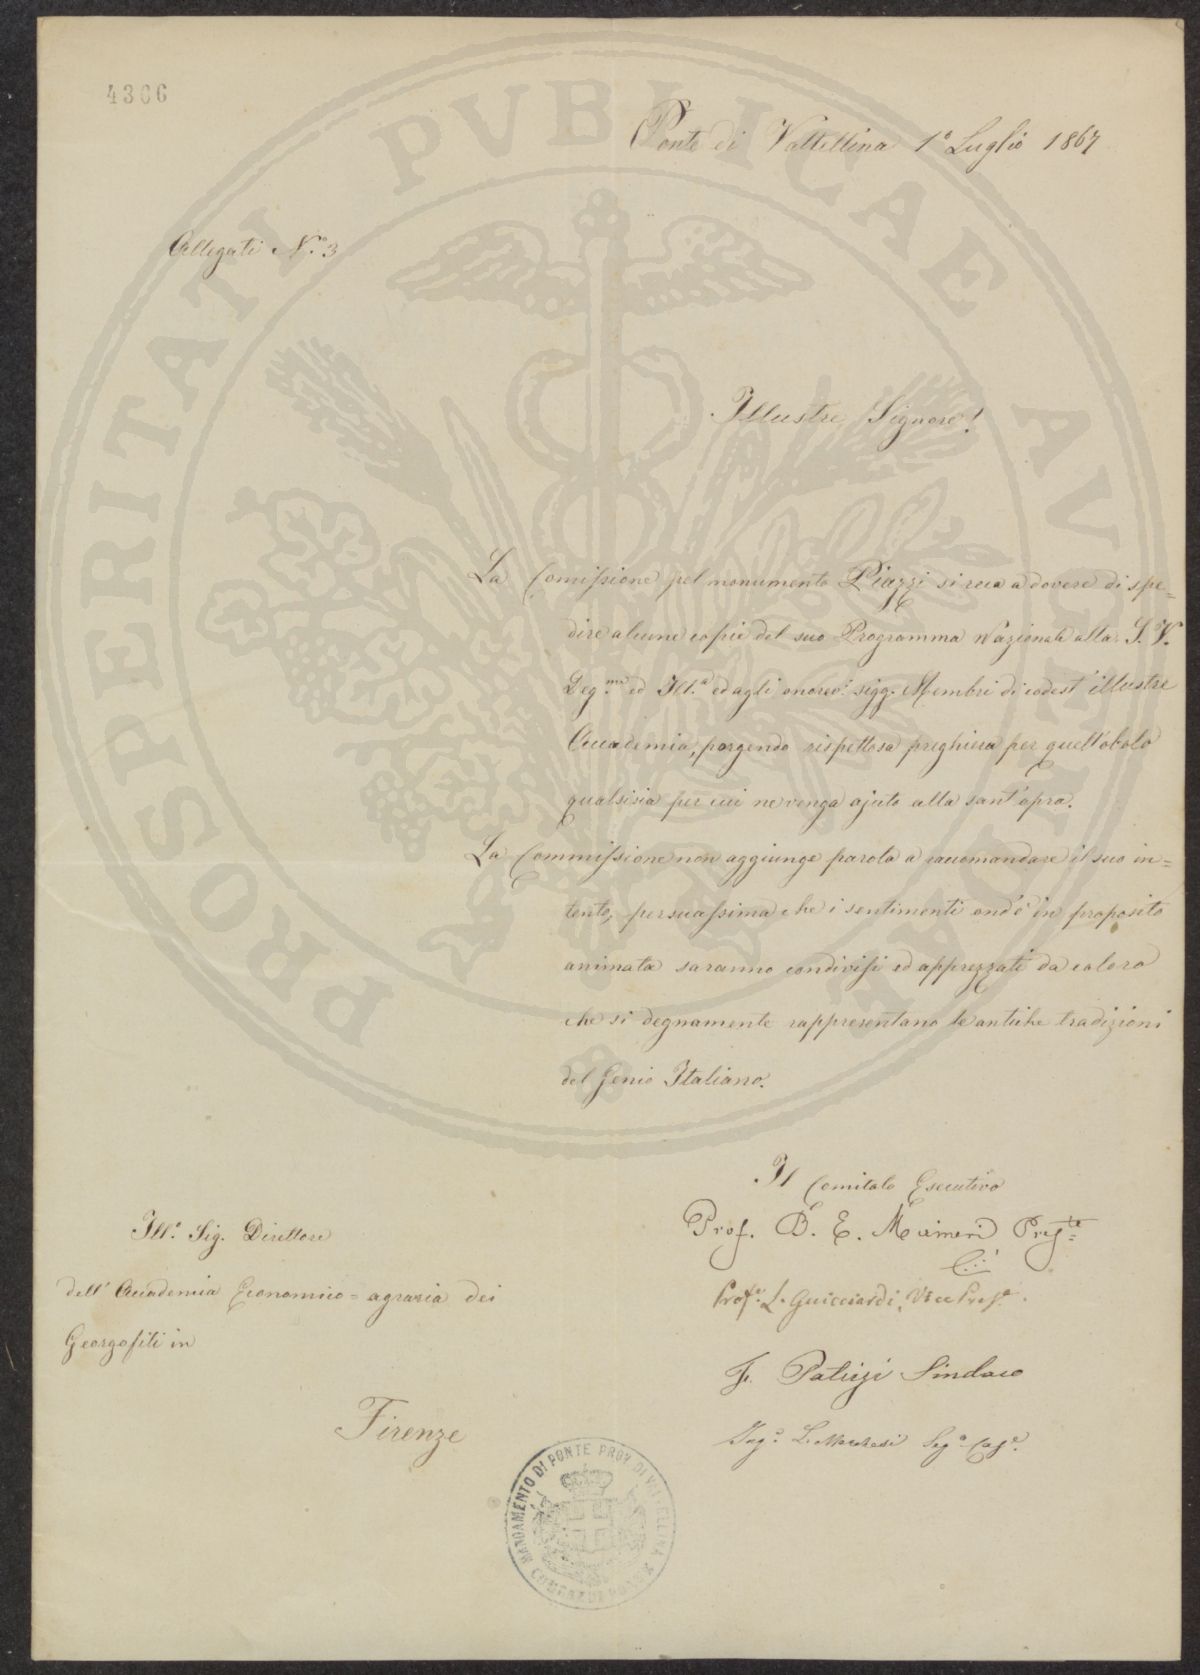 4366
Ponte di Valtellina 1° Luglio 1867
Allegati N.° 3
Illustre Signore!
La Comissione pel monumento Piazzi si reca a dovere di spe=
dire alcune copie del suo Programma Nazionale alla S. V.
Deg.ma ed Ill.a ed agli onorev.i sigg. Membri di codest' illustre
Accademia, porgendo rispettosa preghiera per quell'obolo
qualsisia per cui ne venga ajuto alla sant'opra.
La Commissione non aggiunge parola a raccomandare il suo in=
tento, persuasissima che i sentimenti ond'è in proposito
animata saranno condivisi ed apprezzati da coloro
che si degnamente rappresentano le antiche tradizioni
del Genio Italiano.
Il Comitato Esecutivo
Prof. B. E. Maineri Pres.te
Prof.r L. Guicciardi, Vice Pres.e
F. Patrizi Sindaco
Ing.e L. Marchesi Seg.o Cas.e
Ill.e Sig. Direttore
dell' Accademia Economico=agraria dei
Georgofili in
Firenze
MANDAMENTO DI PONTE PROV. DI VALTELLINA
PROSPERITATI PVBLICAE AVGENDAE